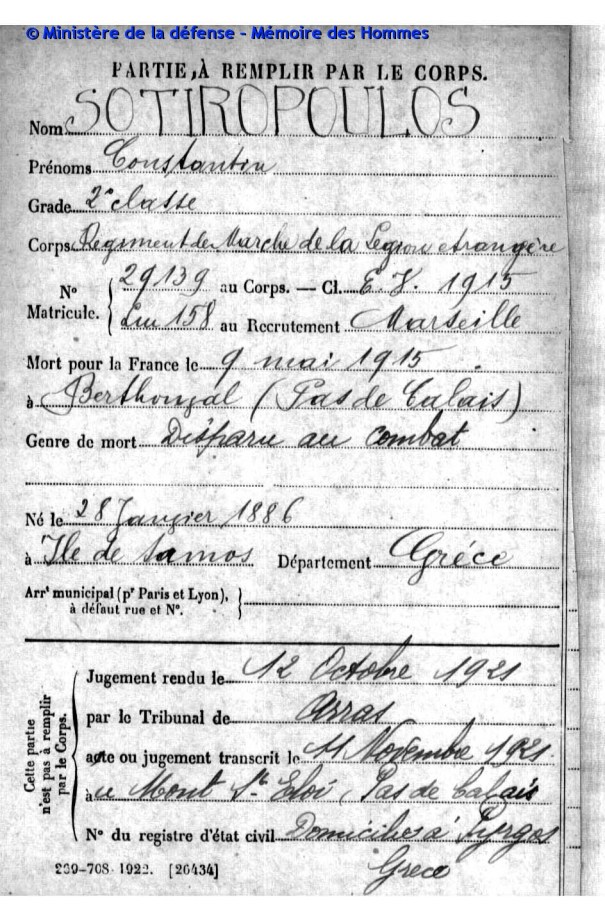 © Ministère de la défense - Mémoire des Hommes
PARTIE À REMPLIR PAR LE CORPS.
Nom SOTIROPOULOS
Prénoms Constantin
Grade 2e classe
Corps Regiment de Marche de la Legion etrangère
N° Matricule. 29139 au Corps. — Cl. E.V. 1915
158 au Recrutement Marseille
Mort pour la France le 9 mai 1915
à Berthonval (Pas de Calais)
Genre de mort Disparu au combat
Né le 28 Janvier 1886
à Ile de Samos Département Gréce
Arrt municipal (pr Paris et Lyon),
à défaut rue et N°.
Cette partie n'est pas à remplir par le Corps.
Jugement rendu le 12 Octobre 1921
par le Tribunal de Arras
acte ou jugement transcrit le 11 Novembre 1921
à Mont St Eloi, Pas de Calais
N° du registre d'état civil Domicilié à Pyrgos
Grece
239-708-1922. [26434]